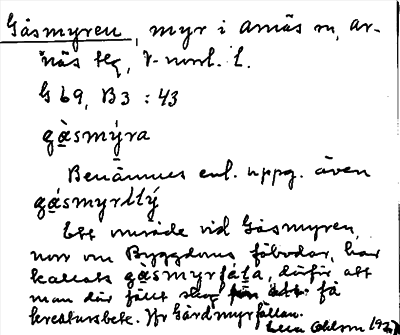 Gåsmyren, myr i Arnäs sn, Ar-
näs tg, V-norrl. l.
G 69, B3 : 43
gàsmýra
Benämnes enl. uppg. även
gásmyrḷḷý
Ett område vid Gåsmyren,
norr om Byggdoms fäbodar, har
kallats gàsmyrfäḷa, därför att
man där fällt skog för att få
kreatursbete. Jfr Gårdmyrfällan.
Ohlson 1927